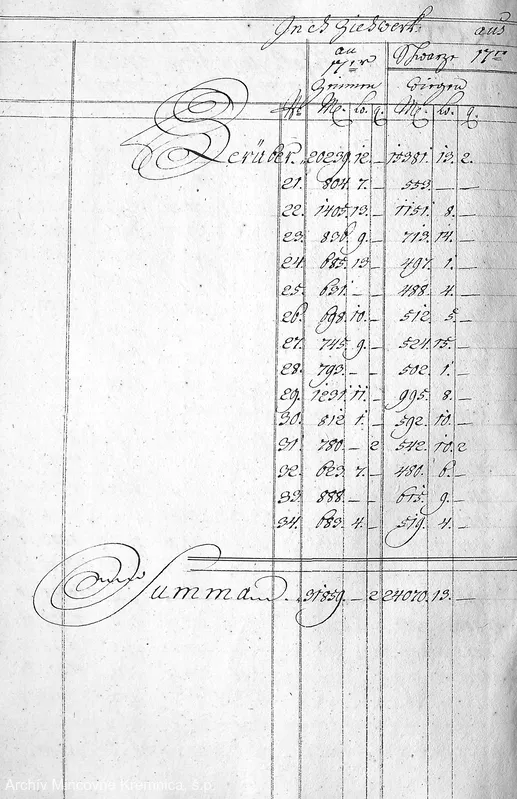 In ch Ziehwerk aus
an Schwarze 17er
17er
Zeinnen Wiegen
No M. Lo. q. M. Lo. q.
Herüber. 20239. 12. – 15381. 13. 2.
21. 804. 7. – 553. – –
22. 1405. 13. – 1151. 8. –
23. 836. 9. – 713. 14. –
24. 685. 13. – 497. 1. –
25. 631. – – 488. 4. –
26. 698. 10. – 512. 5. –
27. 745. 9. – 524. 15. –
28. 793. – – 502. 1. –
29. 1231. 11. – 995. 8. –
30. 812. 1. – 592. 10. –
31. 780. – 2 542. 10. 2
32. 623. 7. – 480. 6. –
33. 888. – – 615. 9. –
34. 683. 4. – 519. 4. –
Summa 31859. – 2 24070. 13. –
Archív Mincovne Kremnica, š.p.